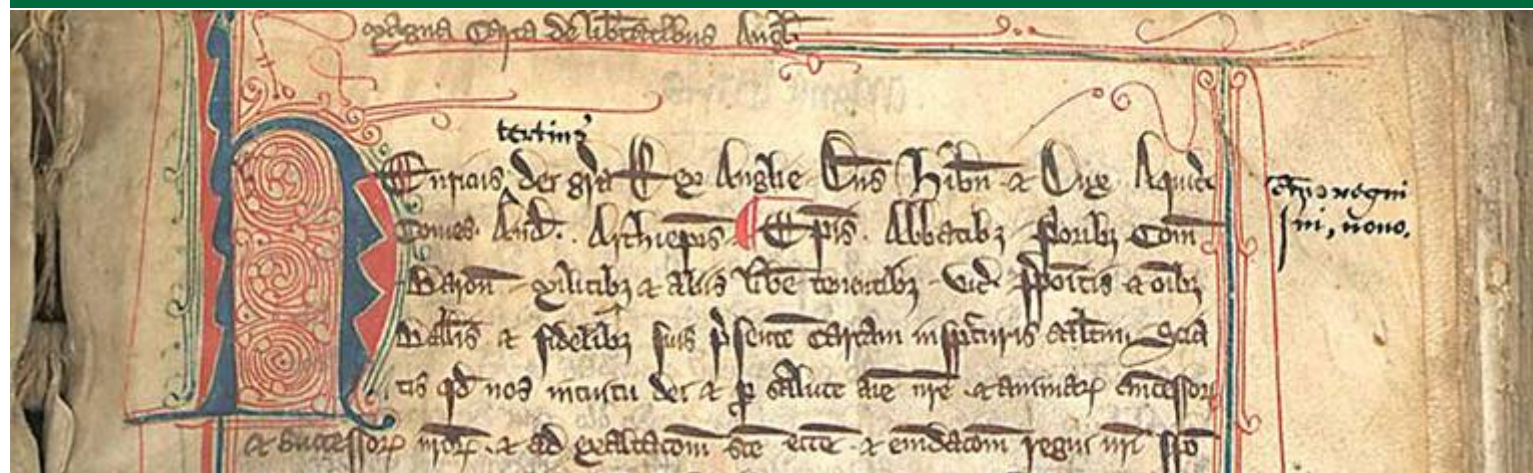 Magna Carta de lib̄tatibus Angl̄
tertius
Henricus dei gr̄a Rex Anglie Dn̄s Hib̄n ⁊ Dux Aquit̄
Comes And̄. Archiep̄is Ep̄is. Abbatibꝫ p̱oribꝫ Com̄
Baron̄ militibꝫ ⁊ aliis lib̄e tenentibꝫ vic̄ p̱poitis ⁊ om̄ibꝫ
Ball̄is ⁊ fidelibꝫ suis p̄sente cartam insp̱cturis sal̄tm Scia
tis qd̄ nos intuitu dei ⁊ p̱ salute aīe nr̄e ⁊ animaꝝ ancessoꝝ
⁊ successoꝝ nr̄oꝝ. ⁊ ad exaltacōm sc̄e ecc̄e ⁊ emdacōm regni nr̄i spo
anno regni
sui, nono.